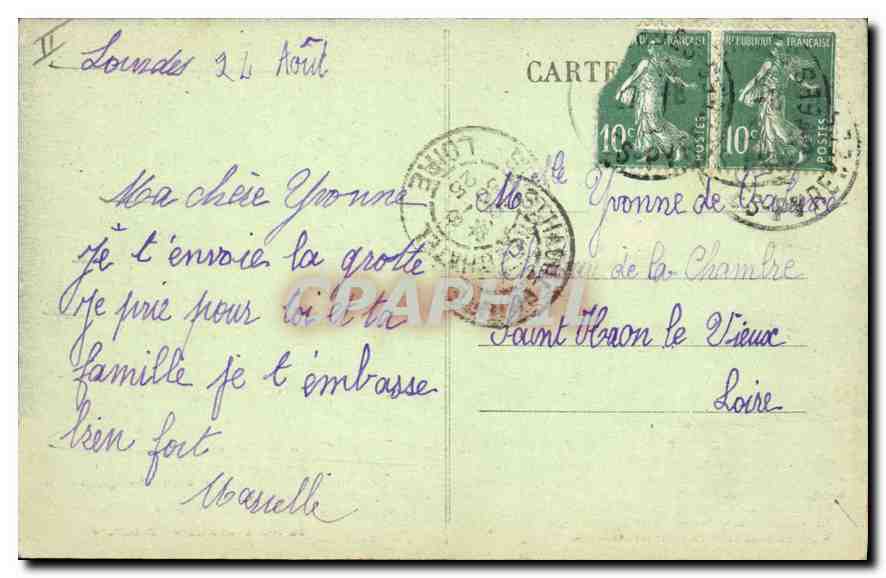 II
Lourdes 24 Août
CARTE
RÉPUBLIQUE FRANÇAISE
10c 10c
POSTES POSTES
LOIRE
Ma chère Yvonne
Je t'envoie la grotte
Je prie pour toi et ta
famille je t'embasse
bien fort
Marcelle
Melle Yvonne de
de la Chambre
Saint Haon le Vieux
Loire
CPAPHIL